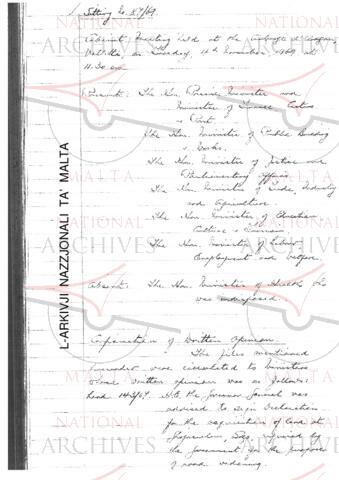 Sitting No. 54/69.
Cabinet Meeting held at the Auberge d'Aragon,
Valletta, on Tuesday, 4th November, 1969 at
11.30 am
Present: The Hon. Prime Minister and
Minister of Finance Customs
& Port.
The Hon. Minister of Public Building
& Works.
The Hon. Minister of Justice and
Parliamentary Affairs.
The Hon. Minister of Trade, Industry
and Agriculture.
The Hon. Minister of Education
Culture & Tourism
The Hon. Minister of Labour,
Employment and Welfare.
Absent: The Hon. Minister of Health who
was indisposed.
Confirmation of Written Opinion
The files mentioned
hereunder were circulated to Ministers
whose written opinion was as follows:
H.E. the Governor General was
advised to sign Declaration
for the acquisition of land at
required by
the Government for the purpose
of road widening.
L-ARKIVJI NAZZJONALI TA' MALTA
NATIONAL
ARCHIVES
MALTA